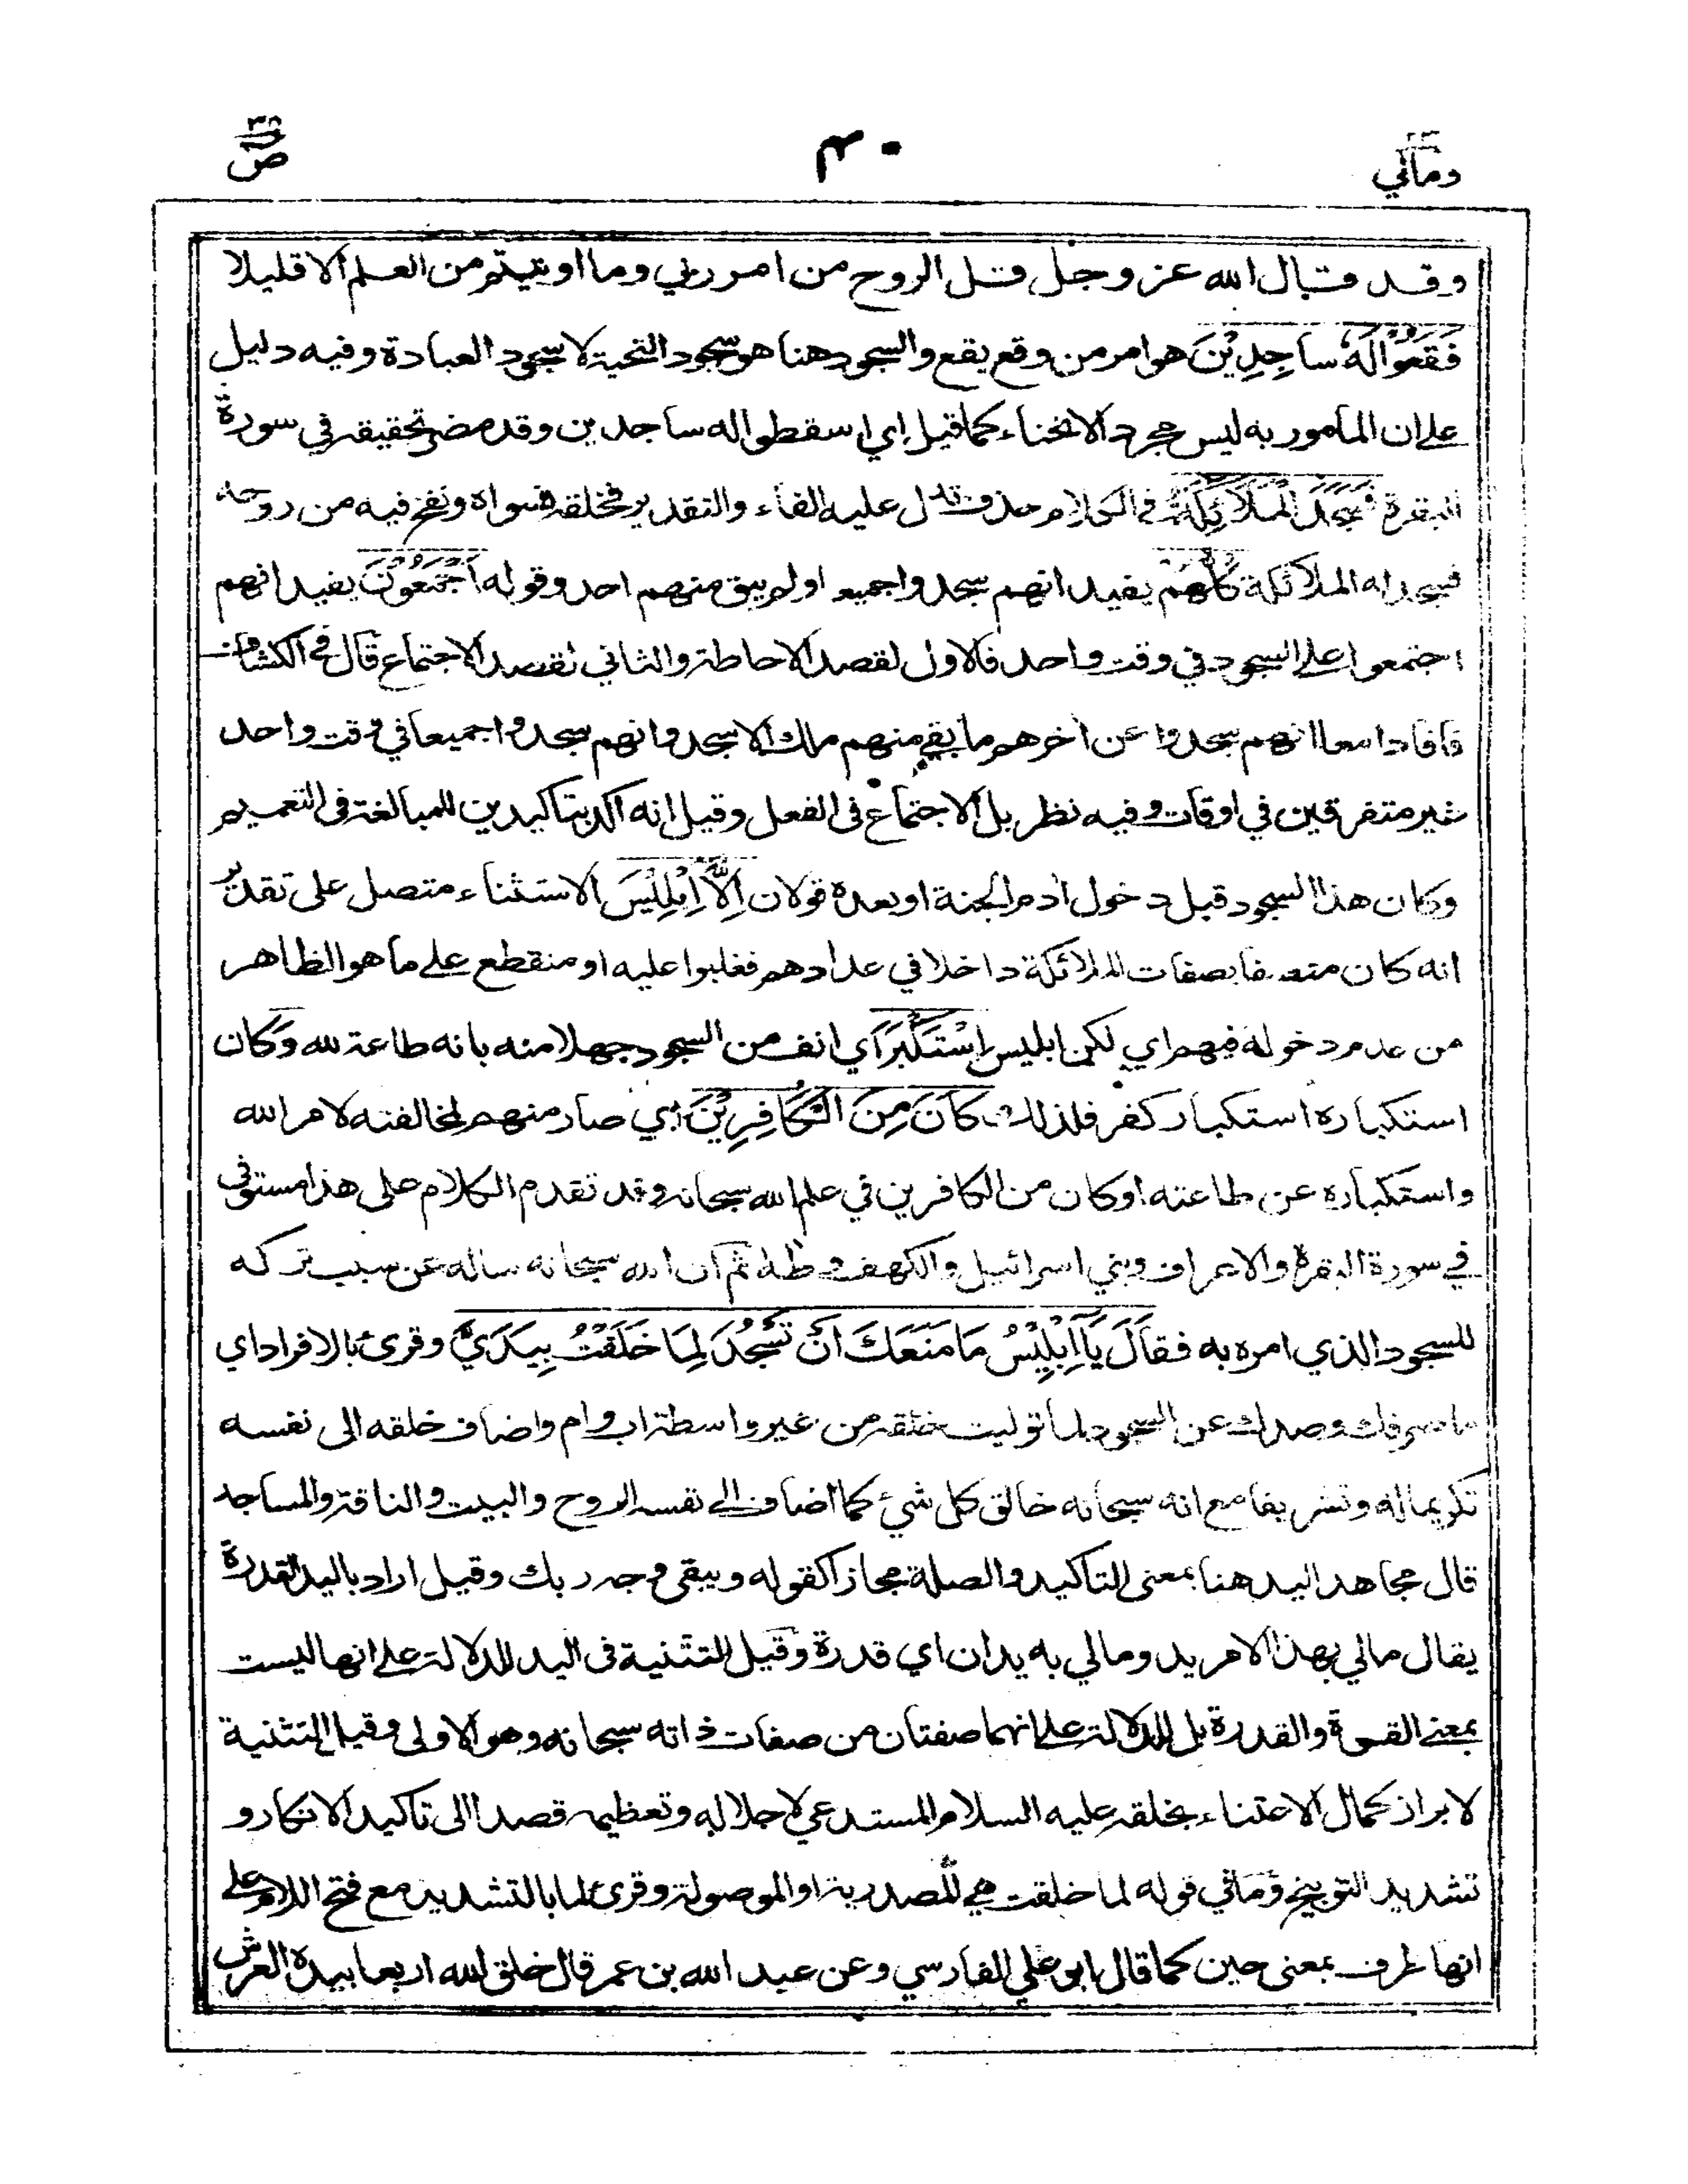 ص ٣٨
٤٠
ومالي ٢٣
وقد قال الله عز وجل قل الروح من امر ربي وما اوتيتم من العلم الا قليلا
فَقَعُوْا لَهٗ سَاجِدِيْنَ هو امر من وقع يقع والسجود هنا هو سجود التحية لا سجود العبادة وفيه دليل
على ان المأمور به ليس مجرد الانحناء كما قيل اي اسقطوا له ساجدين وقد مضى تحقيقه في سورة
البقرة فَسَجَدَ الْمَلَائِكَةُ في الكلام حذف تدل عليه الفاء والتقدير فخلقه فسواه ونفخ فيه من روحه
فسجد له الملائكة كُلُّهُمْ يفيد انهم سجدوا جميعا ولم يبق منهم احد وقوله اَجْمَعُوْنَ يفيد انهم
اجتمعوا على السجود في وقت واحد فالاول لقصد الاحاطة والثاني لقصد الاجتماع قال في الكشاف
فافادا معا انهم سجدوا عن اخرهم ما بقي منهم ملك الا سجد وانهم سجدوا جميعا في وقت واحد
غير متفرقين في اوقات وفيه نظر بل الاجتماع في الفعل وقيل انه اكد بتاكيدين للمبالغة في التعميم
وكان هذا السجود قبل دخول ادم الجنة او بعده قولان اِلَّا اِبْلِيْسَ الاستثناء متصل على تقدير
انه كان متصفا بصفات الملائكة داخلا في عدادهم فغلبوا عليه او منقطع على ما هو الظاهر
من عدم دخوله فيهم اي لكن ابليس اِسْتَكْبَرَ اي انف من السجود جهلا منه بانه طاعة لله وَكان
استكباره استكبار كفر فلذلك كَانَ مِنَ الْكَافِرِيْنَ اي صار منهم لمخالفته لامر الله
واستكباره عن طاعته او كان من الكافرين في علم الله سبحانه وقد تقدم الكلام على هذا مستوفى
في سورة البقرة والاعراف وبني اسرائيل والكهف وطه ثم ان الله سبحانه ساله عن سبب تركه
للسجود الذي امره به فقَالَ يَا اِبْلِيْسُ مَا مَنَعَكَ اَنْ تَسْجُدَ لِمَا خَلَقْتُ بِيَدَيَّ وقرئ بالافراد اي
ما صرفك وصدك عن السجود لما توليت خلقه من غير واسطة اب وام واضاف خلقه الى نفسه
تكريما له وتشريفا مع انه سبحانه خالق كل شيء كما اضاف الى نفسه الروح والبيت والناقة والمساجد
قال مجاهد اليد هنا بمعنى التاكيد والصلة مجازا كقوله ويبقى وجه ربك وقيل اراد باليد القدرة
يقال مالي بهذا الامر يد ومالي به يدان اي قدرة وقيل التثنية في اليد للدلالة على انها ليست
بمعنى القوة والقدرة بل للدلالة على انهما صفتان من صفات ذاته سبحانه وهو الاولى وقيل التثنية
لابراز كمال الاعتناء بخلقه عليه السلام المستدعي لاجلاله وتعظيمه قصدا الى تاكيد الانكار و
تشديد التوبيخ وما في قوله لما خلقت هي المصدرية او الموصولة وقرئ لما بالتشديد مع فتح اللام على
انها ظرف بمعنى حين كما قال ابو علي الفارسي وعن عبد الله بن عمر قال خلق الله اربعا بيده العرش